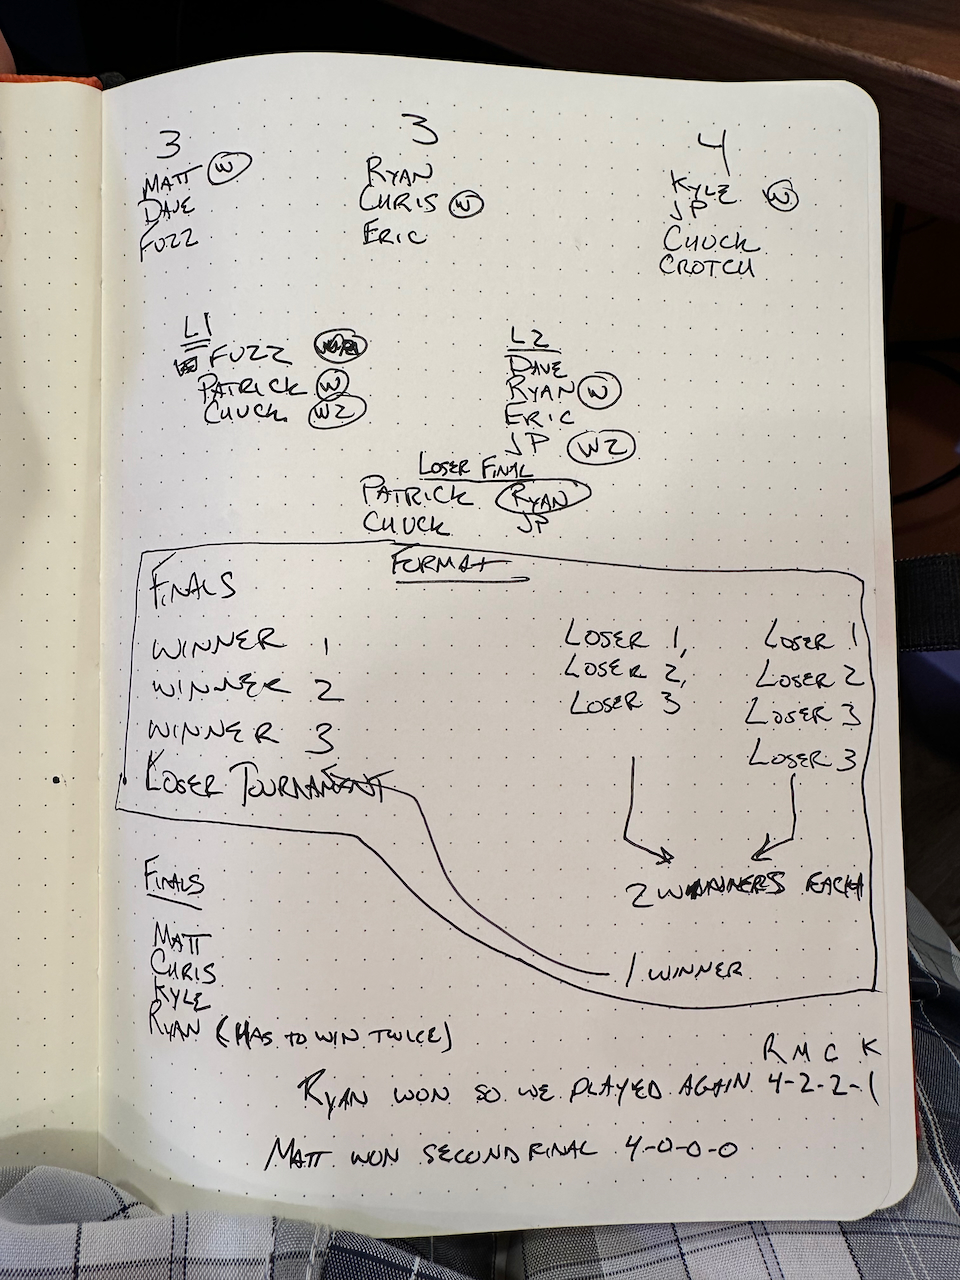 3
MATT W
DAVE
FUZZ
3
RYAN
CHRIS W
ERIC
4
KYLE W
JP
CHUCK
CROTCH
L1
FUZZ
PATRICK W
CHUCK W2
L2
DAVE
RYAN W
ERIC
JP W2
LOSER FINAL
PATRICK RYAN
CHUCK JP
FORMAT
FINALS
WINNER 1
WINNER 2
WINNER 3
LOSER TOURNAMENT
LOSER 1,
LOSER 2,
LOSER 3
LOSER 1
LOSER 2
LOSER 3
LOSER 3
2 WINNERS EACH
1 WINNER
FINALS
MATT
CHRIS
KYLE
RYAN (HAS TO WIN TWICE)
R M C K
RYAN WON SO WE PLAYED AGAIN 4-2-2-1
MATT WON SECOND FINAL 4-0-0-0